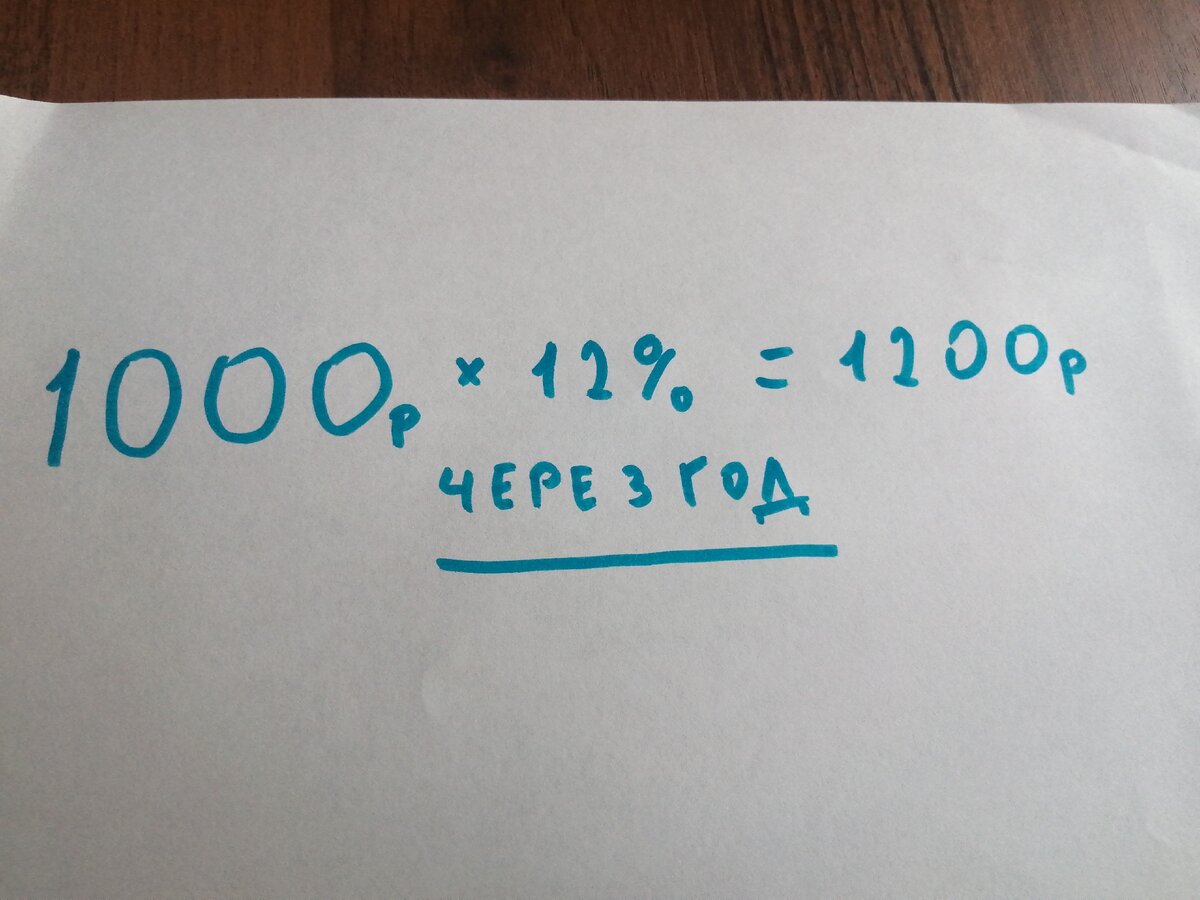 1000р × 12% = 1200р
ЧЕРЕЗ ГОД